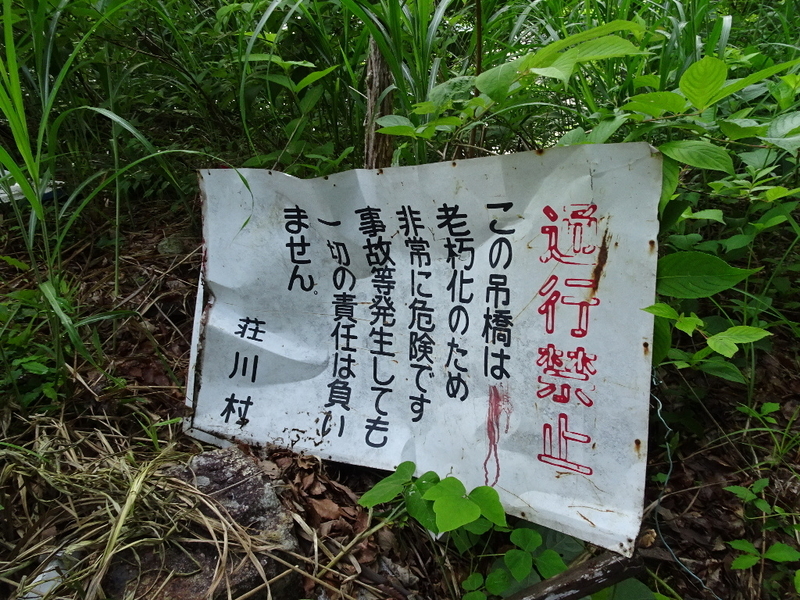 通行禁止
この吊橋は
老朽化のため
非常に危険です
事故等発生しても
一切の責任は負い
ません。
荘川村